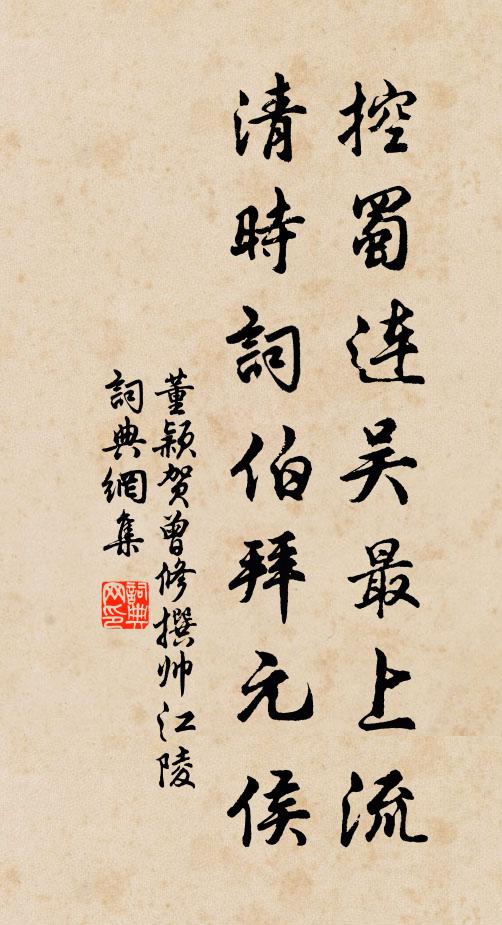 控蜀连吴最上流
清時詞伯拜元侯
董颖贺曾修撰帅江陵
詞典網集
詞典网印